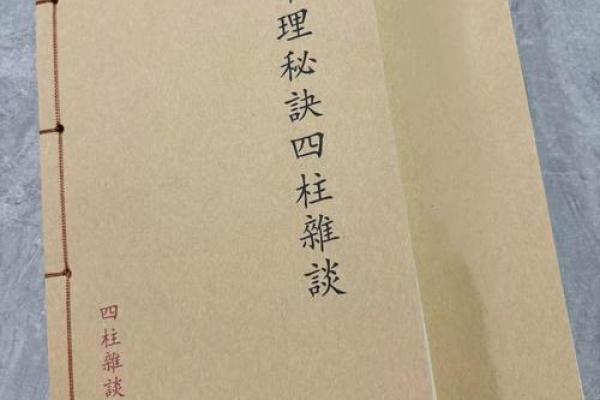 理秘訣四柱雜談
四柱雜談